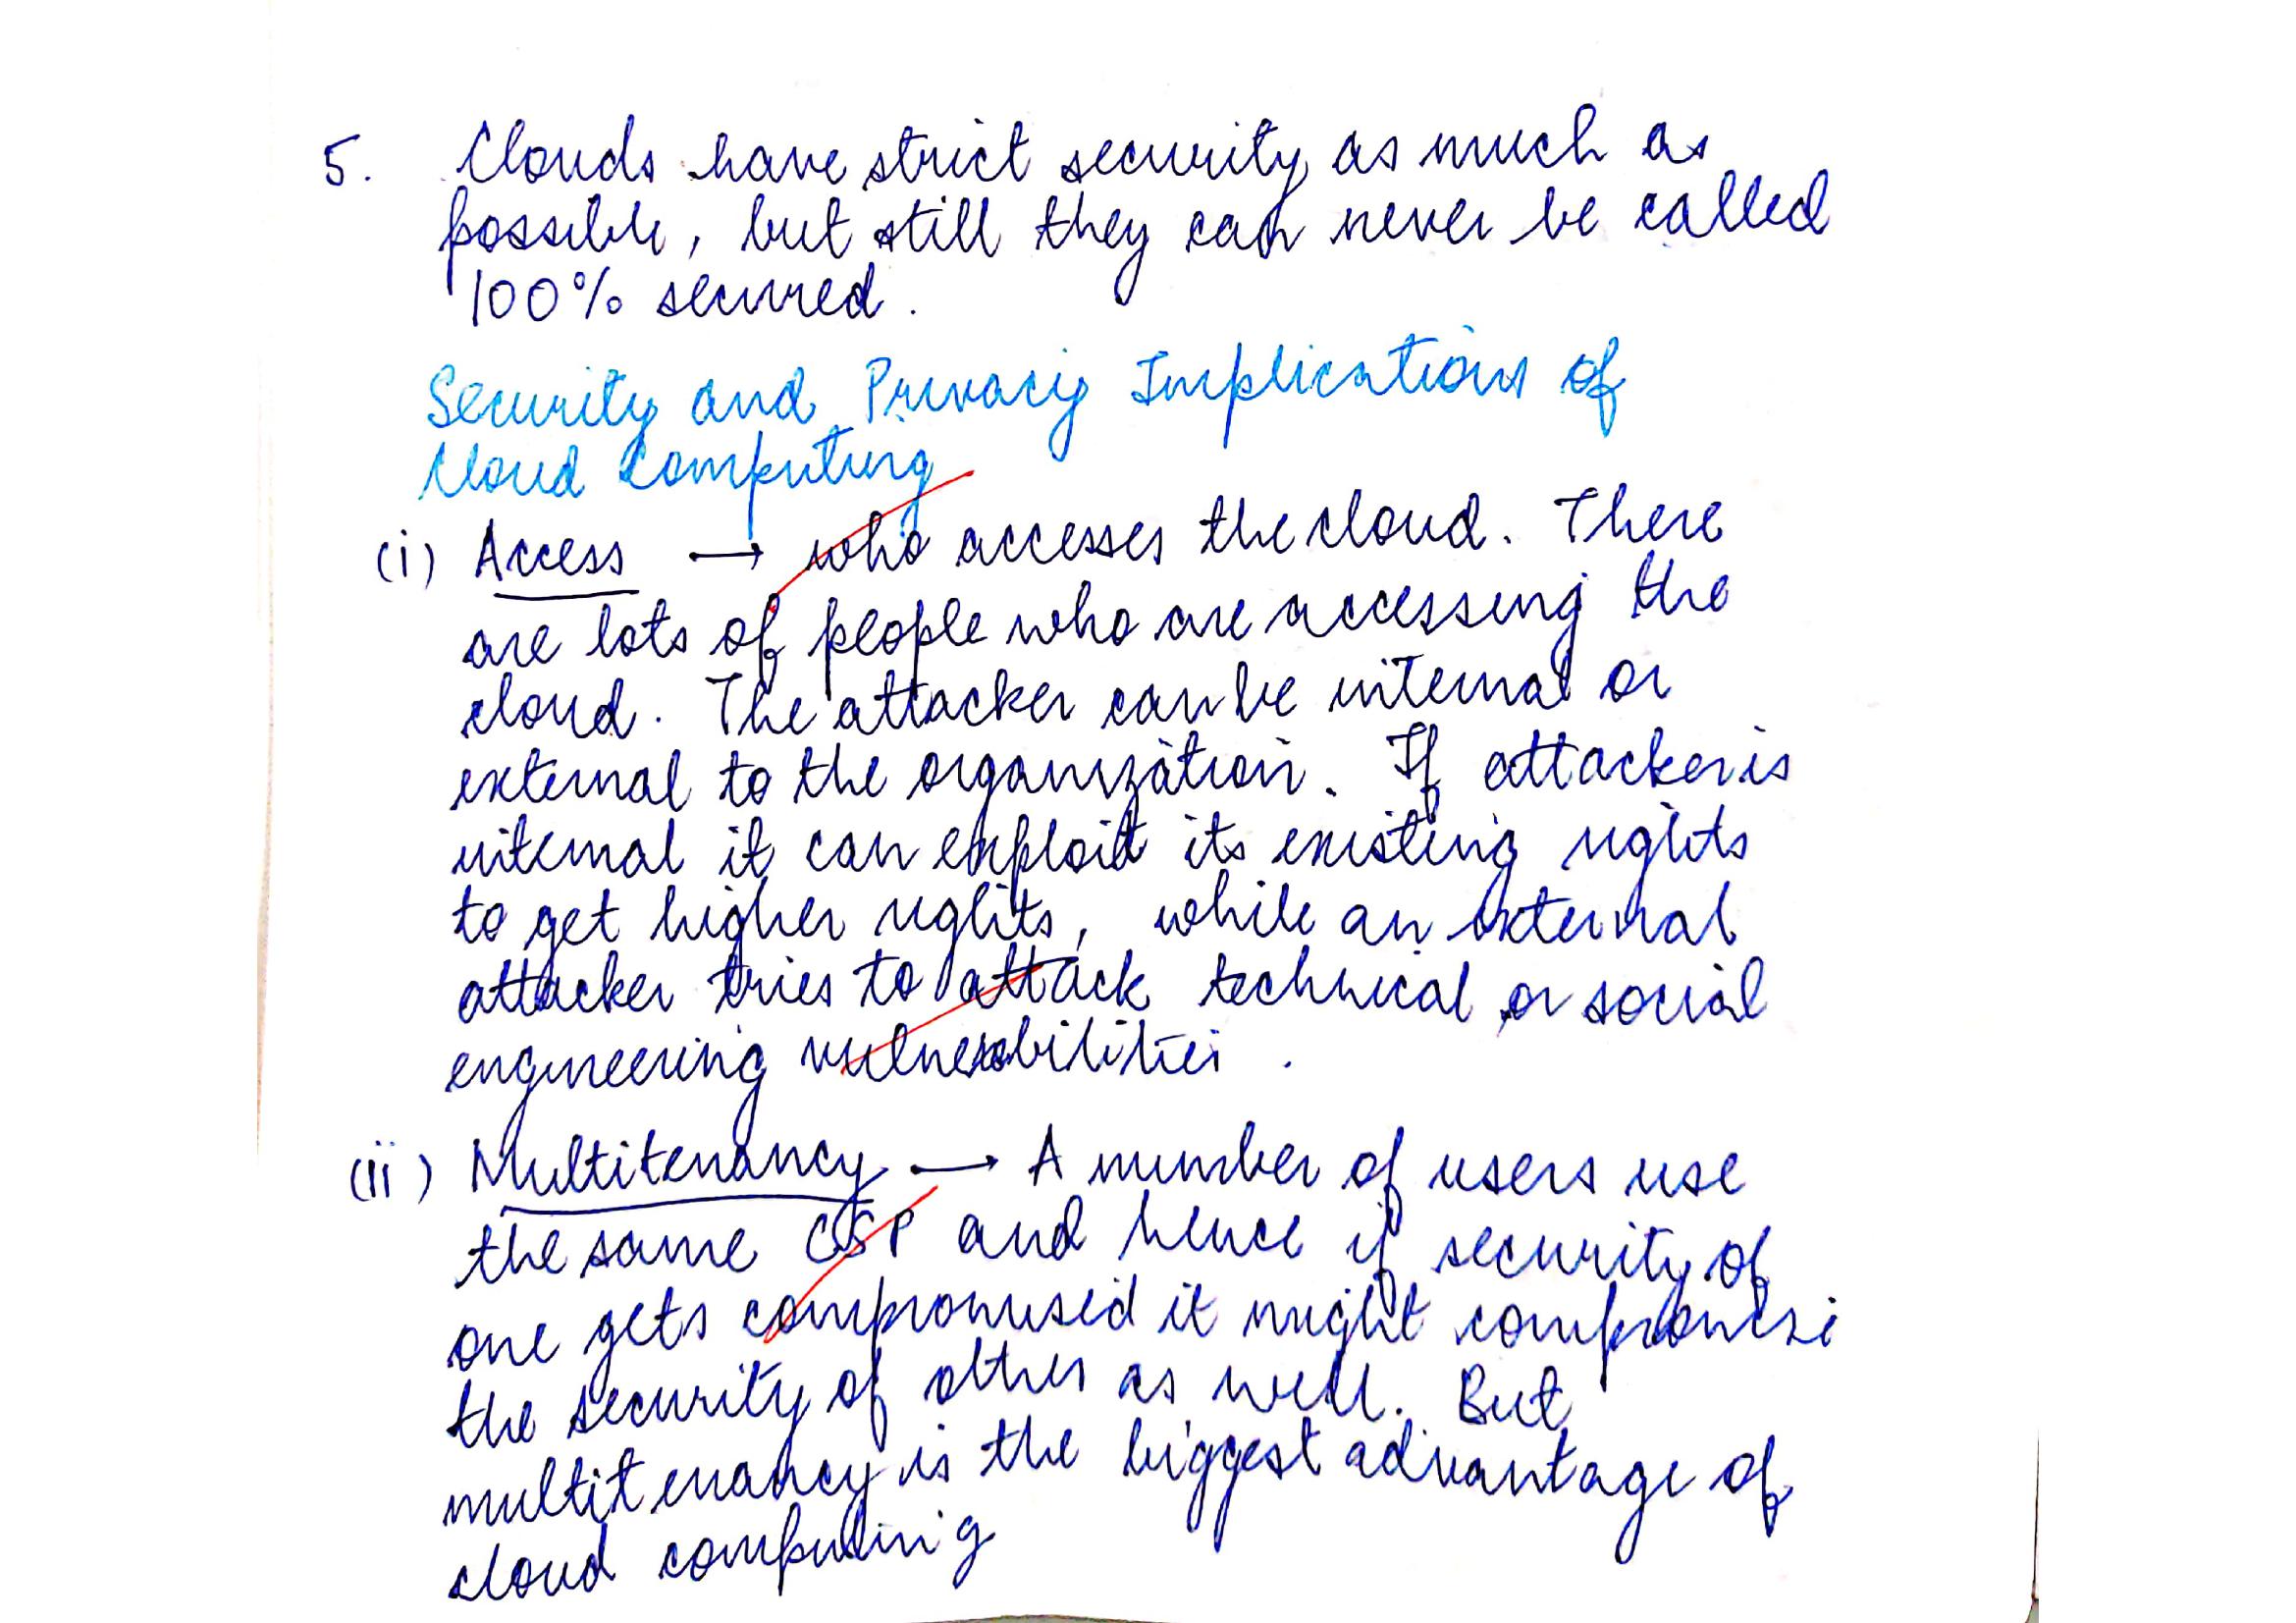 5. Clouds have strict security as much as
possible, but still they can never be called
100% secured.
Security and Privacy Implications of
Cloud Computing
(i) Access → who accesses the cloud. There
are lots of people who are accessing the
cloud. The attacker can be internal or
external to the organization. If attacker is
internal it can exploit its existing rights
to get higher rights, while an external
attacker tries to attack technical or social
engineering vulnerabilities.
(ii) Multitenancy → A number of users use
the same CSP and hence if security of
one gets compromised it might compromise
the security of other as well. But
multitenancy is the biggest advantage of
cloud computing